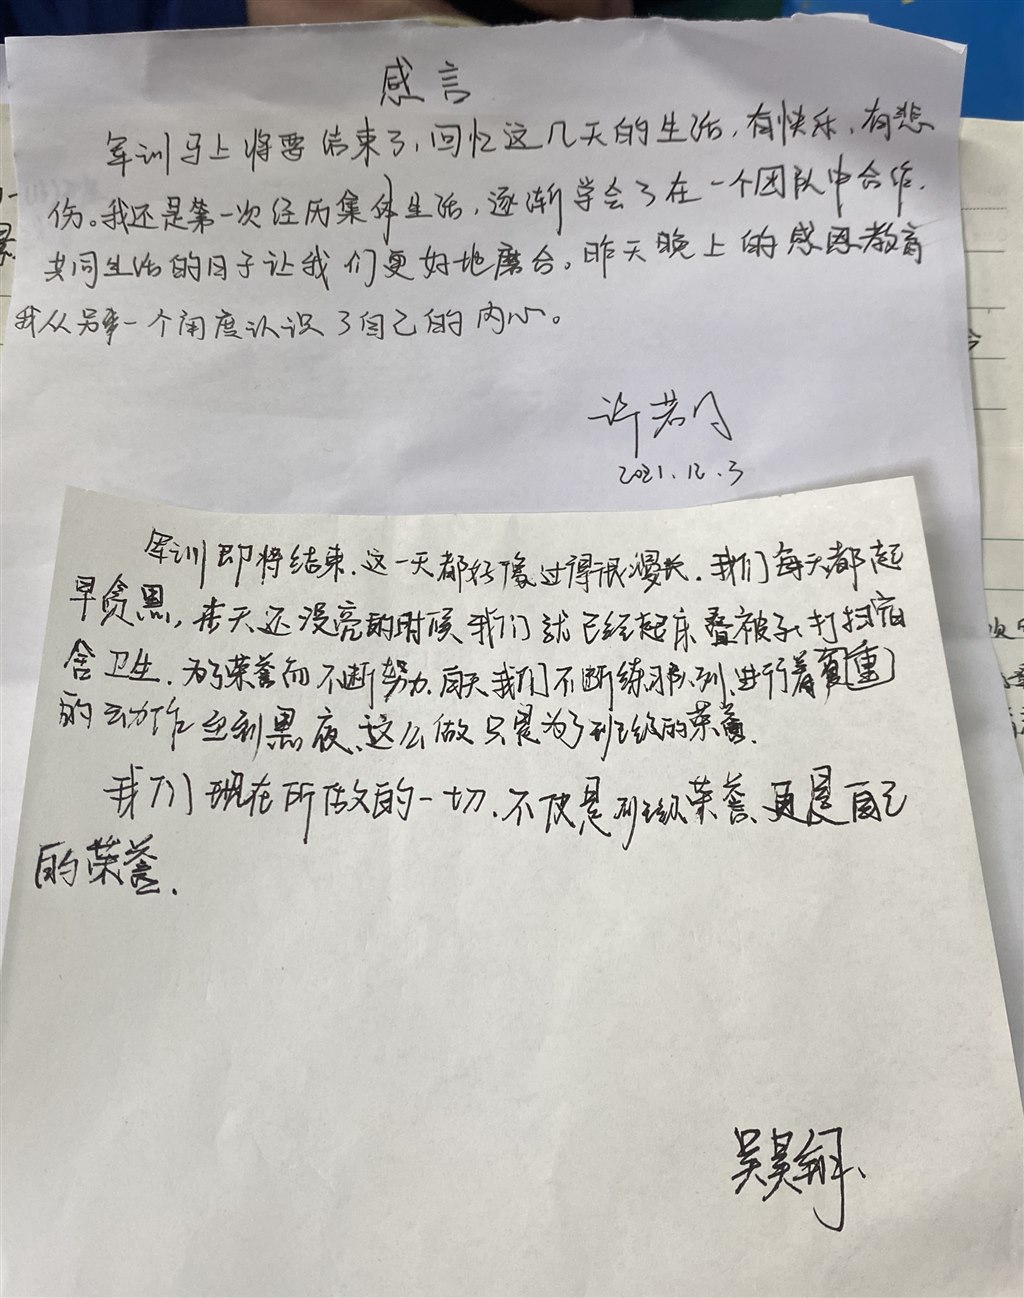 感言
军训马上将要结束了，回忆这几天的生活，有快乐，有悲
伤。我还是第一次经历集体生活，逐渐学会了在一个团队中合作，
共同生活的日子让我们更好地磨合。昨天晚上的感恩教育
我从另一个角度认识了自己的内心。
许若
2021.12.3
军训即将结束，这一天都好像过得很漫长，我们每天都起
早贪黑，在天还没亮的时候我们就已经起床叠被子，打扫宿
舍卫生，为了荣誉而不断努力，白天我们不断练习队列，进行着重
的动作直到黑夜，这么做只是为了班级的荣誉。
我们现在所做的一切，不仅是班级荣誉，更是自己
的荣誉.
吴昊